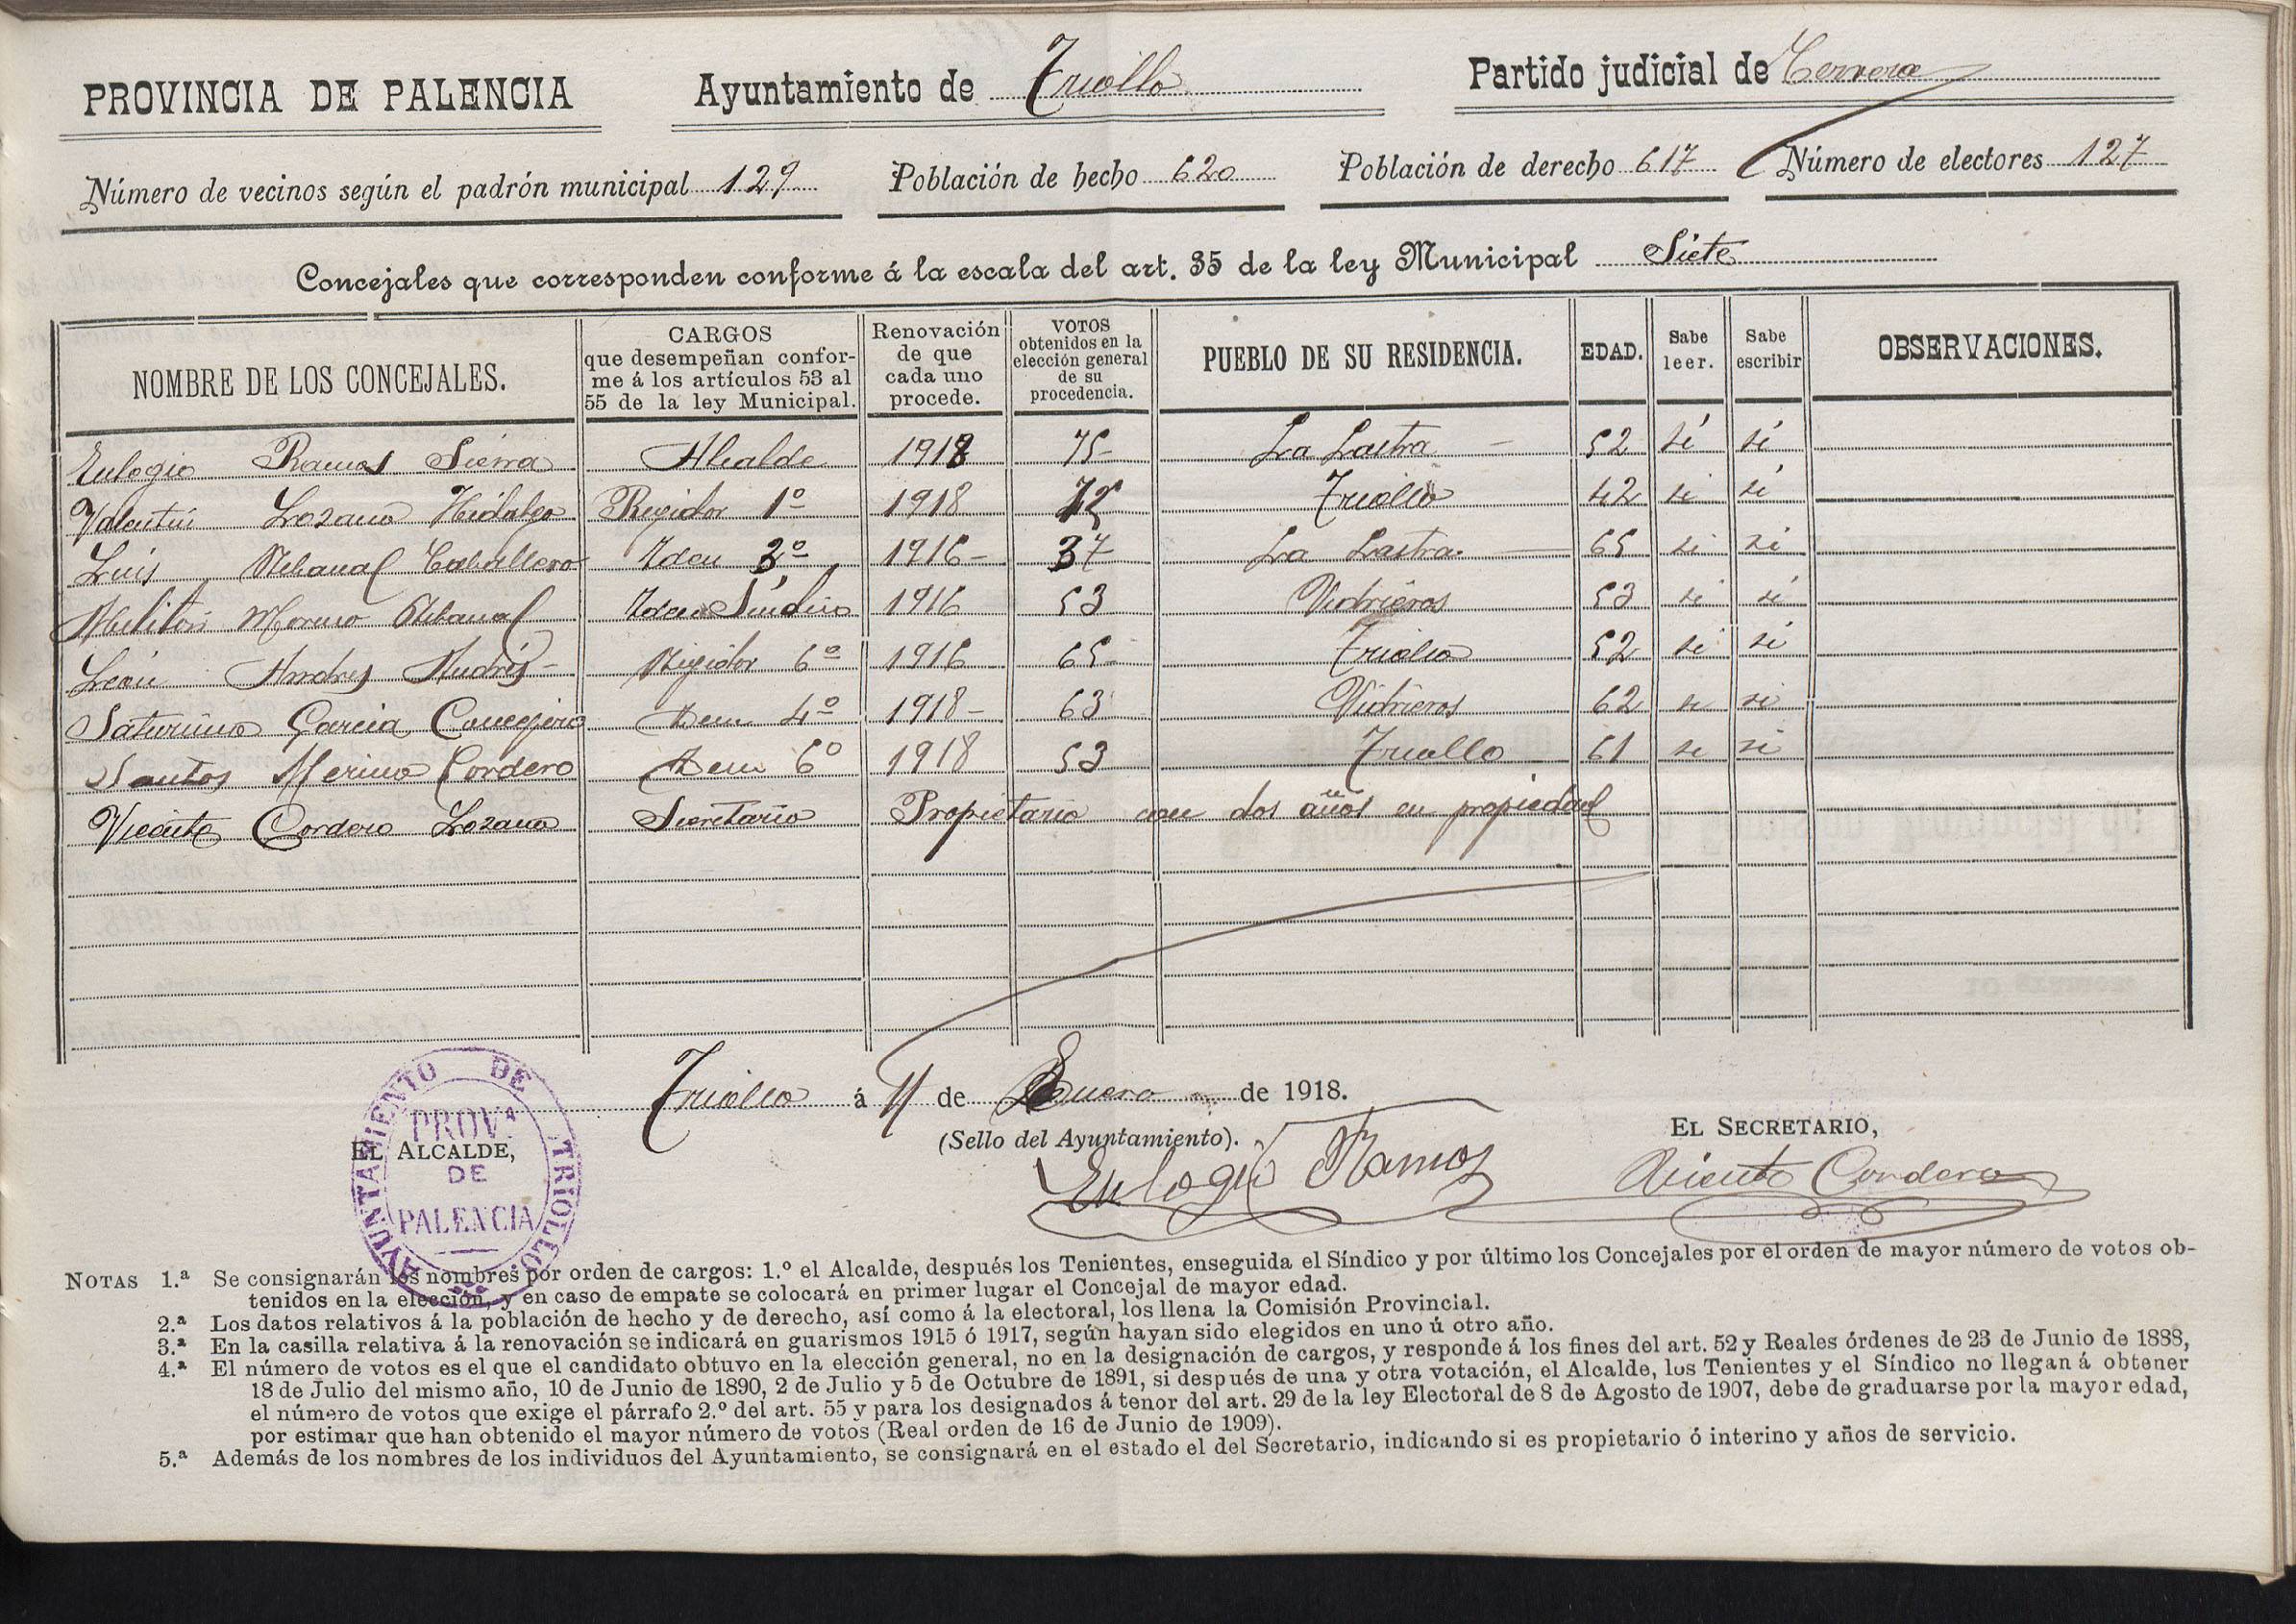 PROVINCIA DE PALENCIA Ayuntamiento de Triollo Partido judicial de Cervera
Número de vecinos según el padrón municipal 129 Población de hecho 620 Población de derecho 617 Número de electores 127
Concejales que corresponden conforme á la escala del art. 35 de la ley Municipal Siete
NOMBRE DE LOS CONCEJALES. CARGOS que desempeñan conforme á los artículos 53 al 55 de la ley Municipal. Renovación de que cada uno procede. VOTOS obtenidos en la elección general de su procedencia. PUEBLO DE SU RESIDENCIA. EDAD. Sabe leer. Sabe escribir OBSERVACIONES.
Eulogio Ramos Sierra Alcalde 1918 75 La Lastra 52 sí sí
Valentín Lozano Hidalgo Regidor 1º 1918 Triollo 42 si si
Luis Mebanal Caballero Idem 3º 1916 37 La Lastra 65 si si
Melitón Moreno Mebanal Idem Síndico 1916 53 Vidrieros 53 si si
León Andres Andrés Regidor 6º 1916 65 Triollo 52 si si
Saturnino García Concejero Idem 4º 1918 63 Vidrieros 62 si si
Santos Merino Cordero Idem 6º 1918 53 Triollo 61 si si
Vicente Cordero Lozano Secretario Propietario con dos años en propiedad
Triollo á 11 de Enero de 1918.
(Sello del Ayuntamiento).
EL ALCALDE, EL SECRETARIO,
Eulogio Ramos Vicente Cordero
AYUNTAMIENTO DE TRIOLLO
PROVª
DE
PALENCIA
NOTAS 1.ª Se consignarán los nombres por orden de cargos: 1.º el Alcalde, después los Tenientes, enseguida el Síndico y por último los Concejales por el orden de mayor número de votos ob-
tenidos en la elección, y en caso de empate se colocará en primer lugar el Concejal de mayor edad.
2.ª Los datos relativos á la población de hecho y de derecho, así como á la electoral, los llena la Comisión Provincial.
3.ª En la casilla relativa á la renovación se indicará en guarismos 1915 ó 1917, según hayan sido elegidos en uno ú otro año.
4.ª El número de votos es el que el candidato obtuvo en la elección general, no en la designación de cargos, y responde á los fines del art. 52 y Reales órdenes de 23 de Junio de 1888,
18 de Julio del mismo año, 10 de Junio de 1890, 2 de Julio y 5 de Octubre de 1891, si después de una y otra votación, el Alcalde, los Tenientes y el Síndico no llegan á obtener
el número de votos que exige el párrafo 2.º del art. 55 y para los designados á tenor del art. 29 de la ley Electoral de 8 de Agosto de 1907, debe de graduarse por la mayor edad,
por estimar que han obtenido el mayor número de votos (Real orden de 16 de Junio de 1909).
5.ª Además de los nombres de los individuos del Ayuntamiento, se consignará en el estado el del Secretario, indicando si es propietario ó interino y años de servicio.